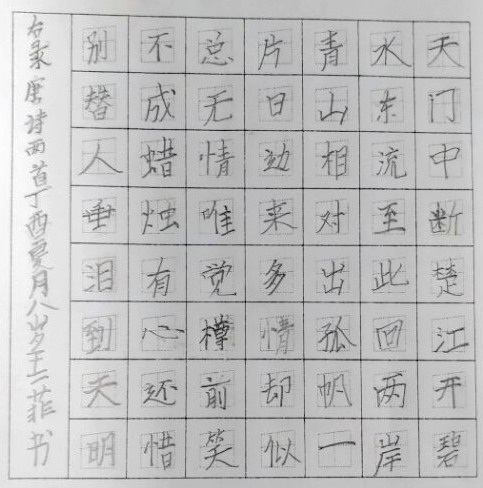 天门中断楚江开碧
水东流至此回两岸
青山相对出孤帆一
片日边来多情却似
总无情唯觉樽前笑
不成蜡烛有心还惜
别替人垂泪到天明
右录唐诗两首丁酉夏月八岁王一菲书